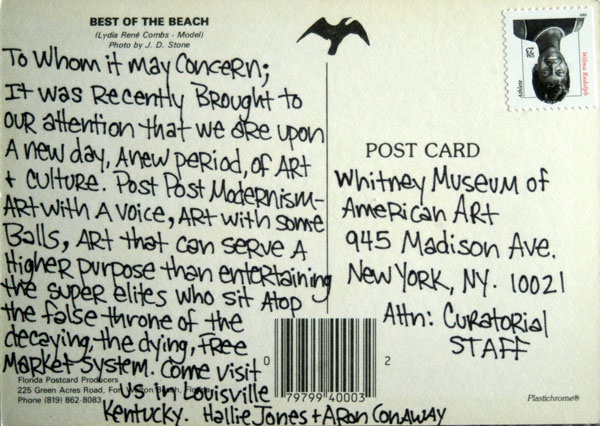 BEST OF THE BEACH
(Lydia René Combs - Model)
Photo by J. D. Stone
To Whom it may Concern;
It was Recently Brought to
our attention that we are upon
A new day, A new period, of ART
+ Culture. Post Post Modernism-
ART with A voice, ART with some
Balls, ART that can serve A
Higher purpose than entertaining
the super elites who sit Atop
the false throne of the
decaying, the dying, free
Market System. Come visit
us in Louisville
Kentucky. Hallie Jones + Aron Conaway
Florida Postcard Producers
225 Green Acres Road, Fort Walton Beach, Florida
Phone (819) 862-8083
POST CARD
Whitney Museum of
American Art
945 Madison Ave.
New York, NY. 10021
Attn: Curatorial
STAFF
0 79799 40003 2
Plastichrome®
Wilma Rudolph
Athlete
USA
23